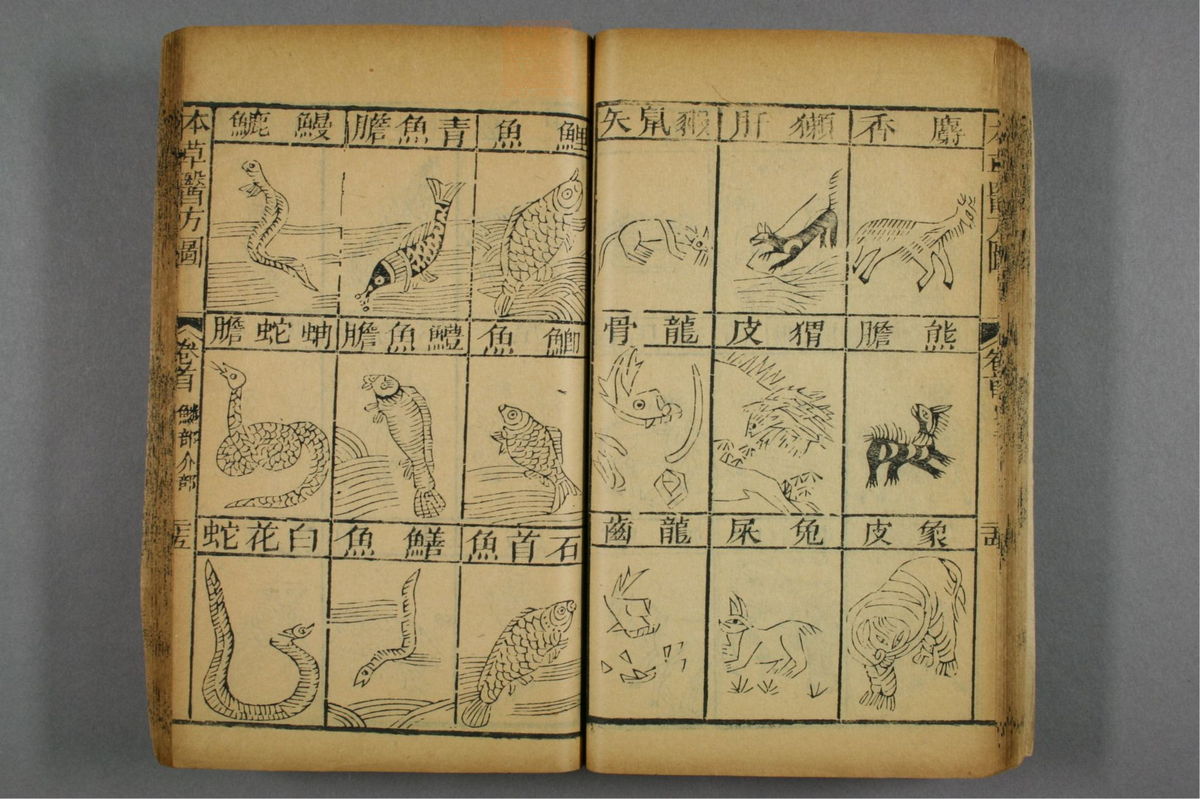 麝香
獺肝
貑鼠矢
熊膽
猬皮
龍骨
象皮
兔屎
龍齒
鯉魚
青魚膽
鰻鱺
鯽魚
鱧魚膽
蚺蛇膽
石首魚
鱔魚
白花蛇
本草醫方圖
卷首
鱗部介部
二五